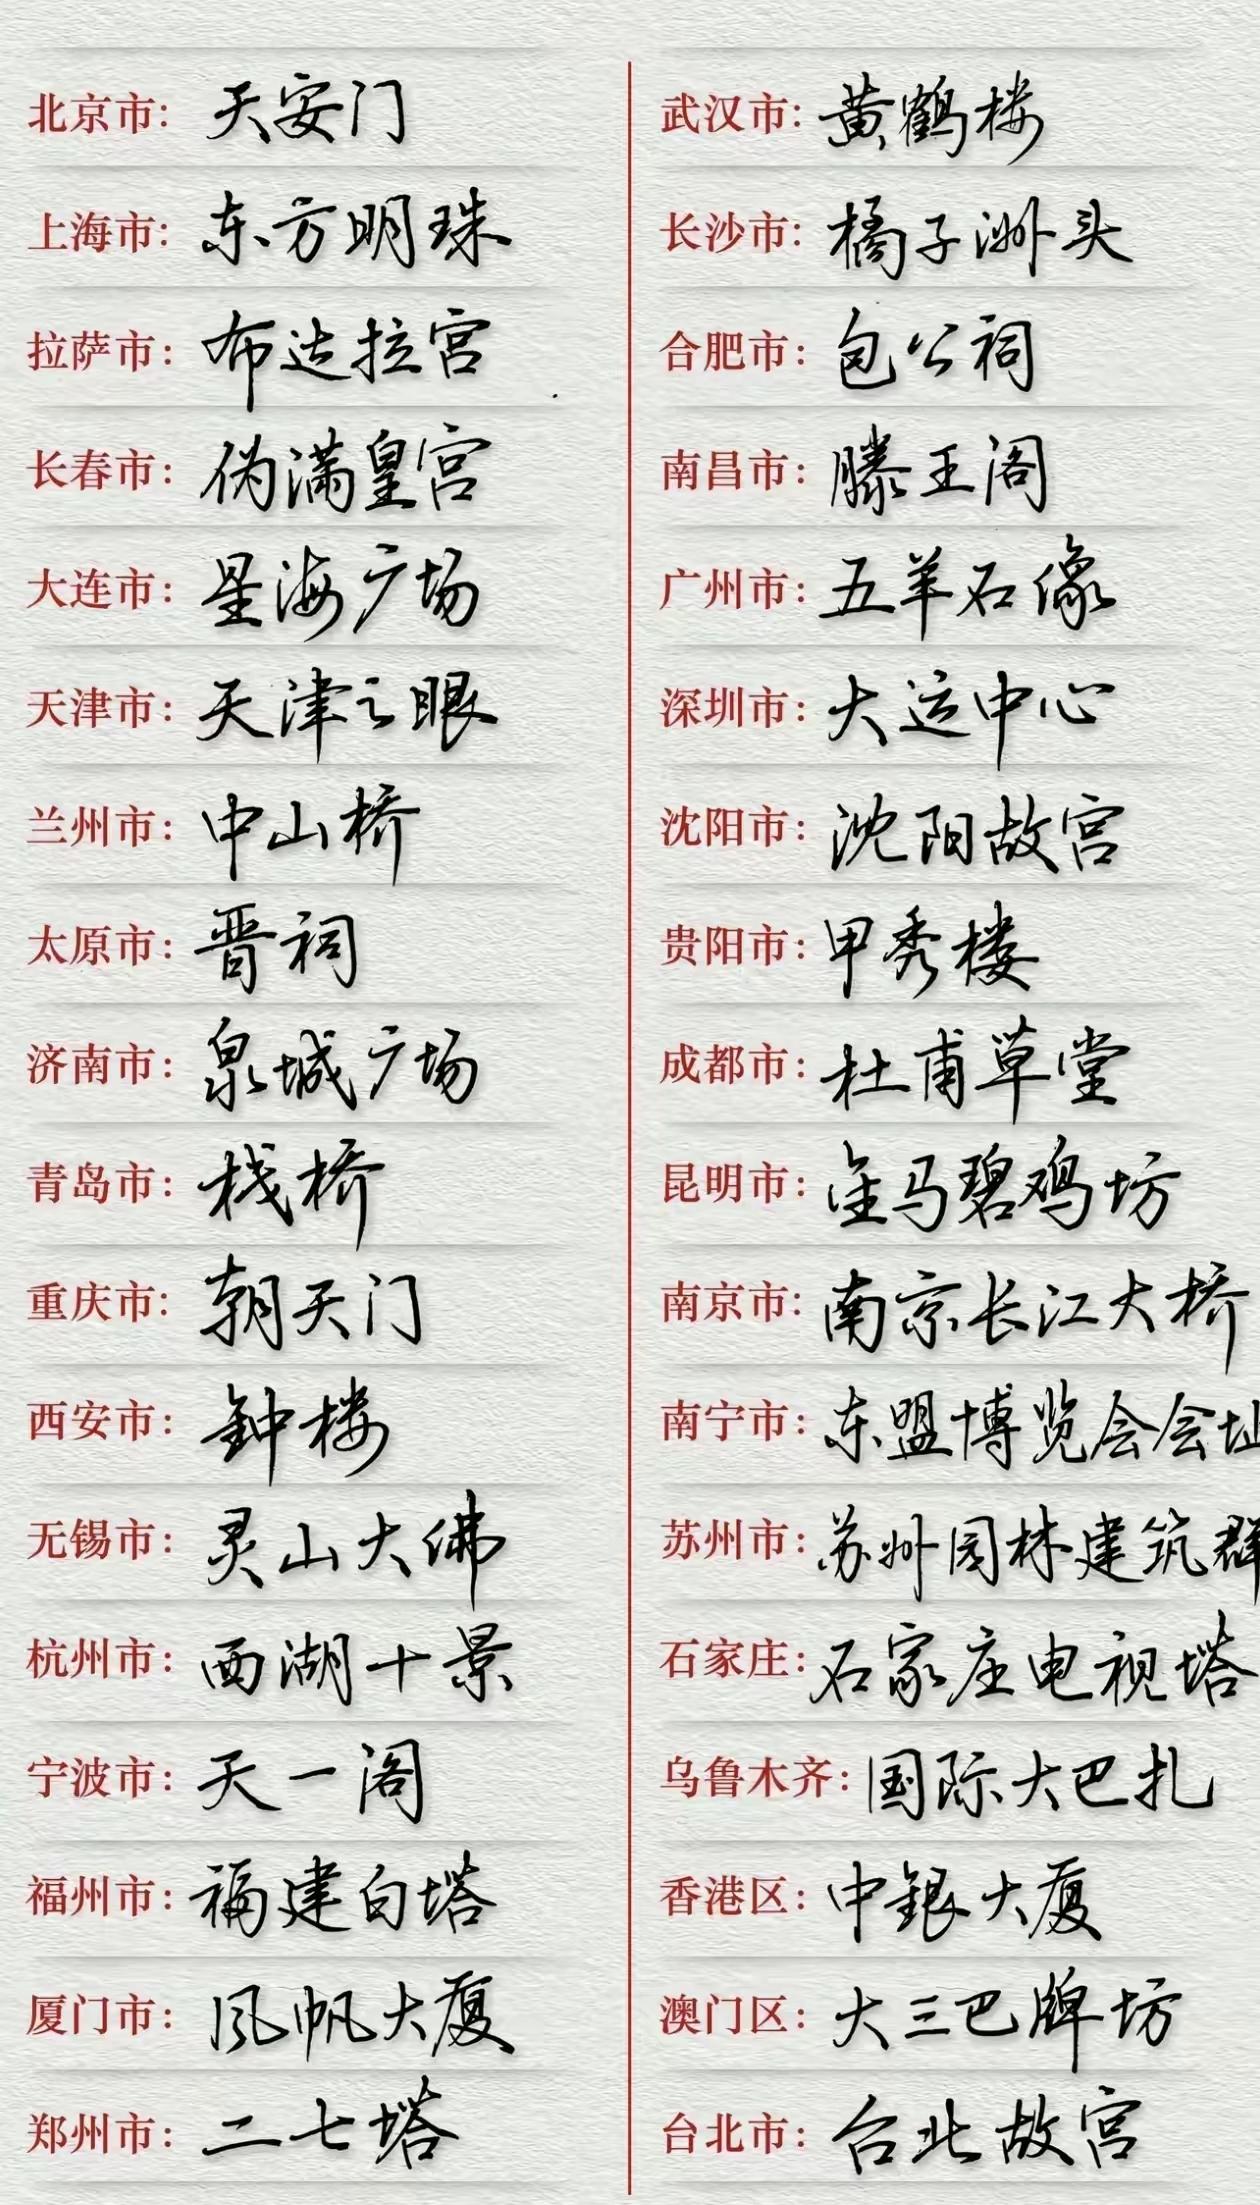 北京市：天安门
上海市：东方明珠
拉萨市：布达拉宫
长春市：伪满皇宫
大连市：星海广场
天津市：天津之眼
兰州市：中山桥
太原市：晋祠
济南市：泉城广场
青岛市：栈桥
重庆市：朝天门
西安市：钟楼
无锡市：灵山大佛
杭州市：西湖十景
宁波市：天一阁
福州市：福建白塔
厦门市：风帆大厦
郑州市：二七塔
武汉市：黄鹤楼
长沙市：橘子洲头
合肥市：包公祠
南昌市：滕王阁
广州市：五羊石像
深圳市：大运中心
沈阳市：沈阳故宫
贵阳市：甲秀楼
成都市：杜甫草堂
昆明市：金马碧鸡坊
南京市：南京长江大桥
南宁市：东盟博览会会址
苏州市：苏州园林建筑群
石家庄：石家庄电视塔
乌鲁木齐：国际大巴扎
香港区：中银大厦
澳门区：大三巴牌坊
台北市：台北故宫